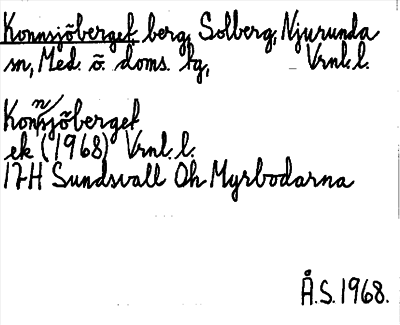 Konnsjöberget berg, Solberg, Njurunda
sn, Med. ö. doms. tg, Vrnl. l.
Konnsjöberget
ek (1968) Vrnl. l.
17H Sundsvall Öh Myrbodarna
Å.S. 1968.